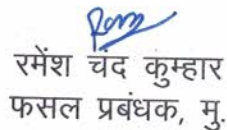 रमेंश चंद कुम्हार
फसल प्रबंधक, मु.